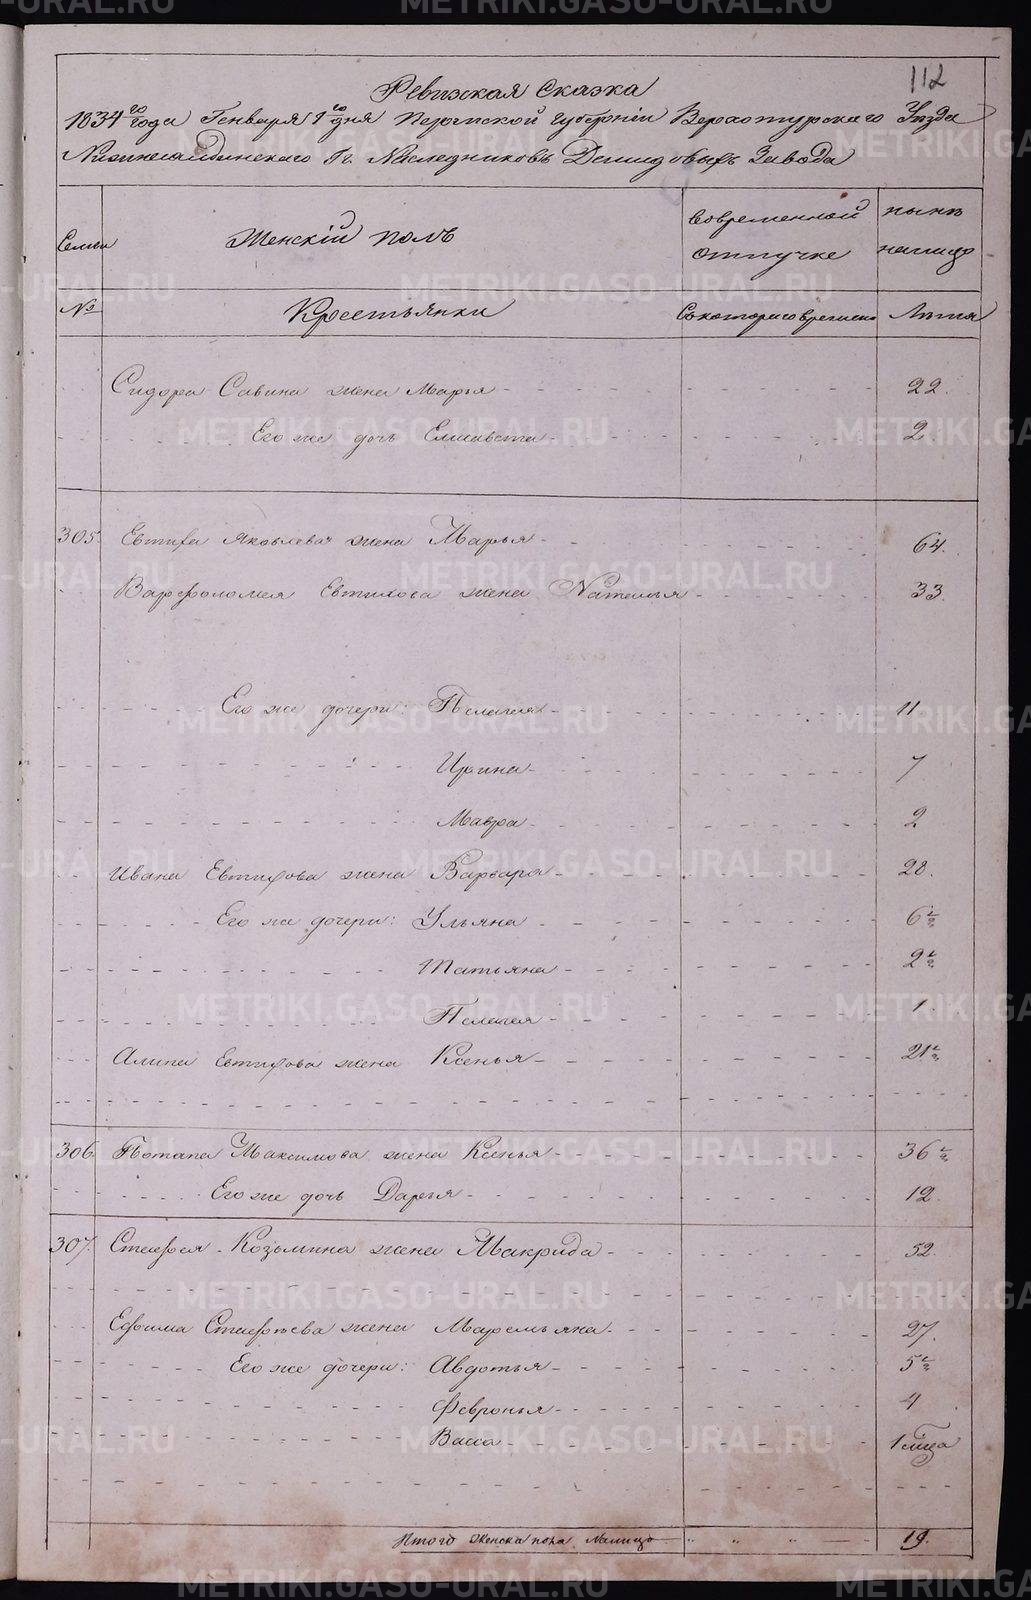 112
Ревизская Сказка
1834го года Генваря 1го дня Пермской Губернiи Верхотурскаго Уезда
Нижнесалдинскаго Гг. Наследниковъ Демидовыхъ Завода
Семьи
Женскiй полъ
Во временной отлучке
ныне налицо
№
Крестьянки
Съ котораго времени
Лета
Сидора Савина жена Марья 22.
Его же дочь Елисавета 2.
305. Евтифа Яковлева жена Марья 64.
Варфоломея Евтихова жена Наталья 33.
Его же дочери: Пелагея 11
Ирина 7
Мавра 2
Ивана Евтифова жена Варвара 28.
Его же дочери: Ульяна 6½
Татьяна 2½
Пелагея 1.
Алипа Евтифова жена Ксенья 21½
306. Потапа Максимова жена Ксенья 36½
Его же дочь Дарья 12.
307. Стахея Козьмина жена Макрида 52.
Ефима Стахеева жена Маремьяна 27.
Его же дочери: Авдотья 5½
Февронья 4
Васса 1 мца
Итого женска пола налицо 19.
METRIKI.GASO-URAL.RU